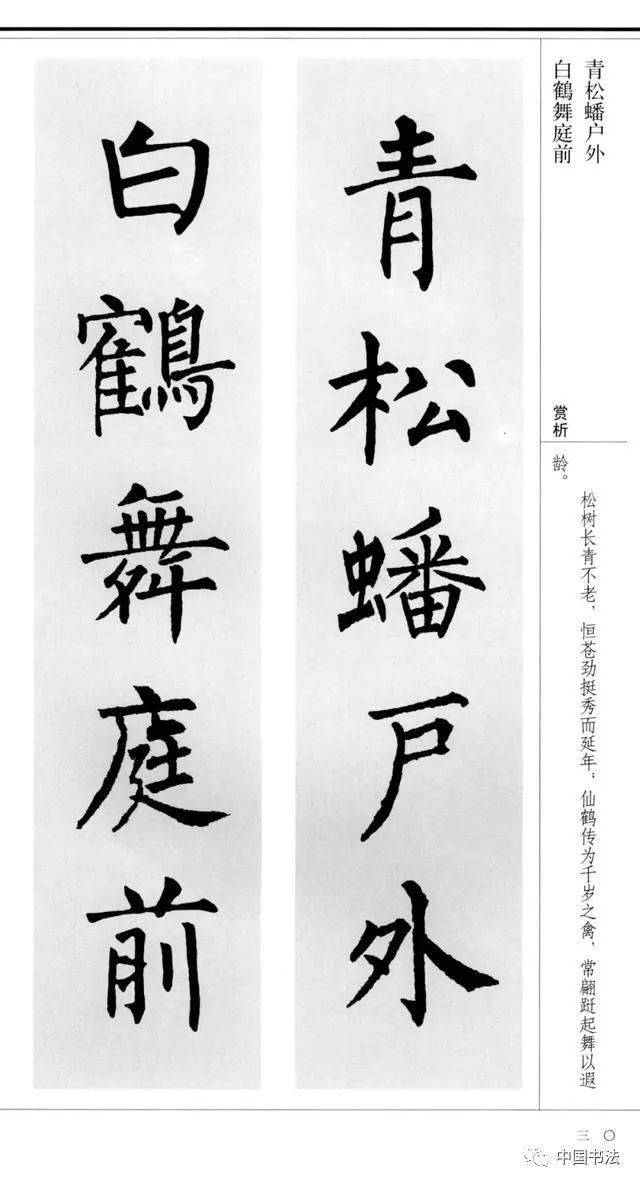 青松蟠户外
白鶴舞庭前
青松蟠户外
白鶴舞庭前
赏析
松树长青不老，恒苍劲挺秀而延年；仙鹤传为千岁之禽，常翩跹起舞以遐
龄。
三〇
中国书法